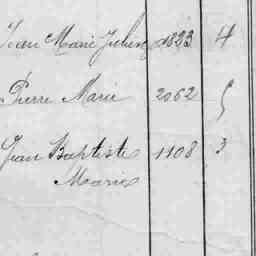 Jean Marie Julien 1823 4
Pierre Marie 2062 5
Jean Baptiste 1108 3
Marie